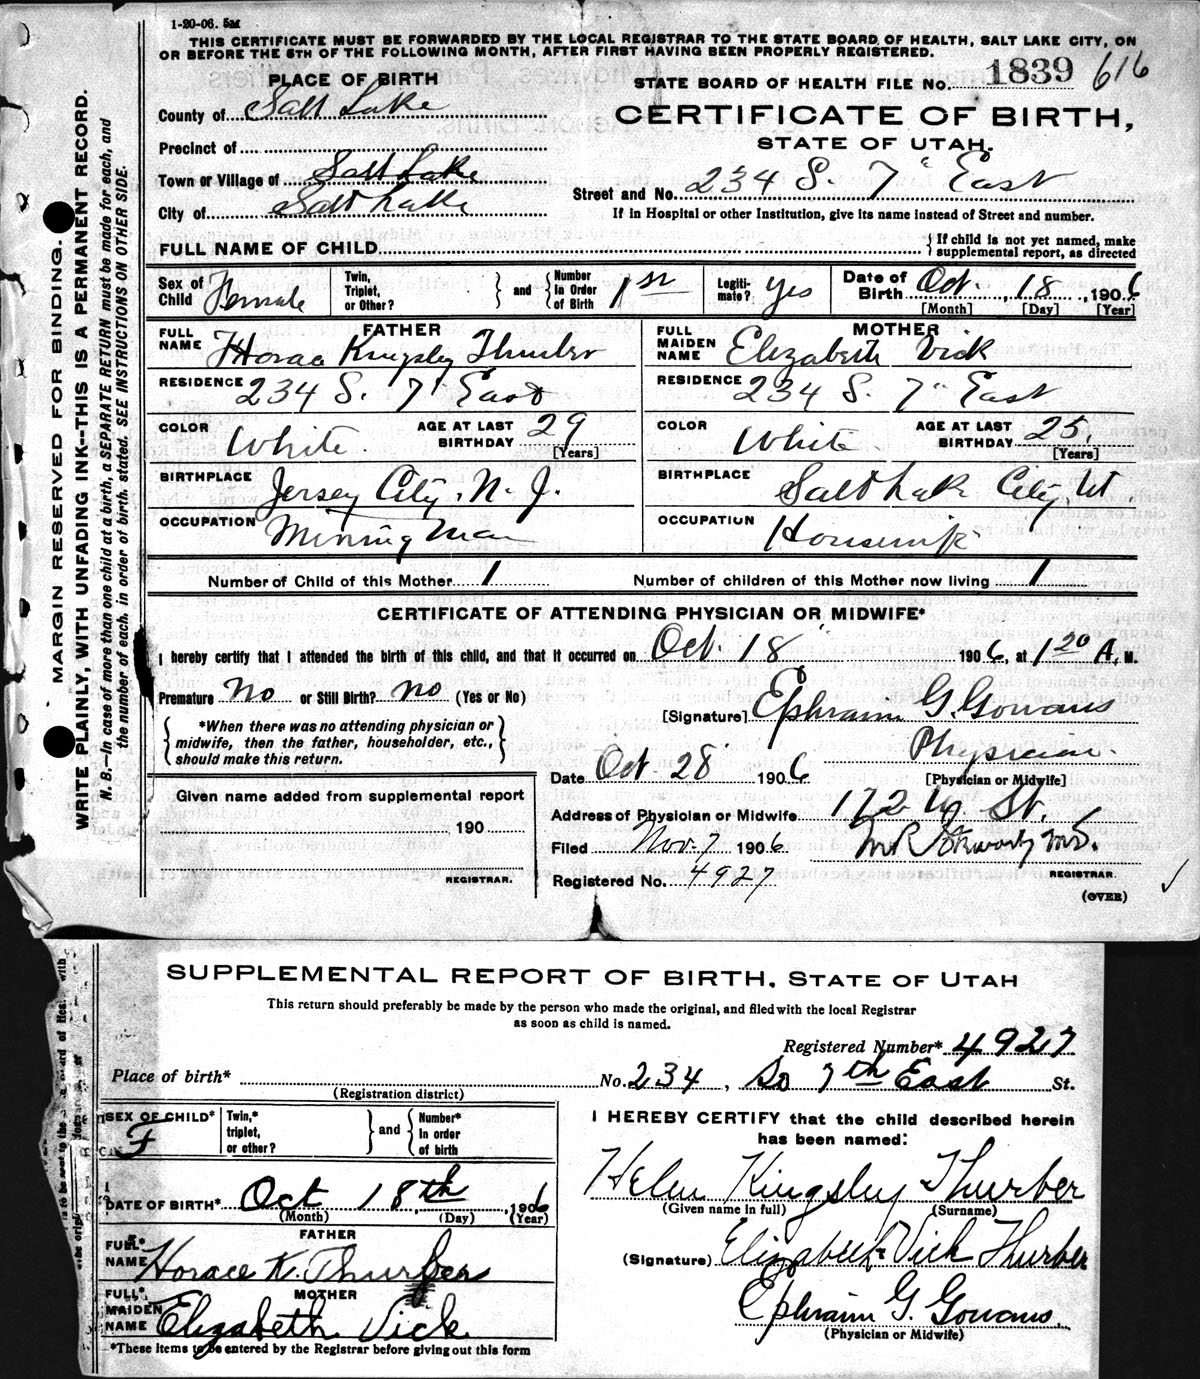 1-20-06. 5M
THIS CERTIFICATE MUST BE FORWARDED BY THE LOCAL REGISTRAR TO THE STATE BOARD OF HEALTH, SALT LAKE CITY, ON
OR BEFORE THE 5TH OF THE FOLLOWING MONTH, AFTER FIRST HAVING BEEN PROPERLY REGISTERED.
PLACE OF BIRTH
STATE BOARD OF HEALTH FILE No. 1839 616
County of Salt Lake
CERTIFICATE OF BIRTH,
STATE OF UTAH.
Precinct of
Town or Village of Salt Lake
Street and No. 234 S. 7" East
City of Salt Lake
If in Hospital or other Institution, give its name instead of Street and number.
FULL NAME OF CHILD
{If child is not yet named, make
supplemental report, as directed
Sex of Child Female
Twin, Triplet, or Other? } and { Number in Order of Birth 1st
Legitimate? yes
Date of Birth Oct. 18, 1906
[Month] [Day] [Year]
FATHER
FULL NAME Horace Kingsley Thurber
RESIDENCE 234 S. 7" East
COLOR White
AGE AT LAST BIRTHDAY 29
[Years]
BIRTHPLACE Jersey City, N. J.
OCCUPATION Mining Man
MOTHER
FULL MAIDEN NAME Elizabeth Vick
RESIDENCE 234 S. 7" East
COLOR White
AGE AT LAST BIRTHDAY 25.
[Years]
BIRTHPLACE Salt Lake City, Ut.
OCCUPATION Housewife
Number of Child of this Mother 1
Number of children of this Mother now living 1
CERTIFICATE OF ATTENDING PHYSICIAN OR MIDWIFE*
I hereby certify that I attended the birth of this child, and that it occurred on Oct. 18 1906, at 1 20 A. M.
Premature No or Still Birth? no (Yes or No)
[Signature] Ephraim G. Gowans
{*When there was no attending physician or
midwife, then the father, householder, etc.,
should make this return.}
Physician.
[Physician or Midwife]
Date Oct. 28 1906
Given name added from supplemental report
Address of Physician or Midwife 172 W St.
, 190
Filed Nov. 7 1906
REGISTRAR.
REGISTRAR.
Registered No. 4927
(OVER)
MARGIN RESERVED FOR BINDING.
WRITE PLAINLY, WITH UNFADING INK--THIS IS A PERMANENT RECORD.
N. B.—In case of more than one child at a birth, a SEPARATE RETURN must be made for each, and
the number of each, in order of birth, stated. SEE INSTRUCTIONS ON OTHER SIDE.
SUPPLEMENTAL REPORT OF BIRTH, STATE OF UTAH
This return should preferably be made by the person who made the original, and filed with the local Registrar
as soon as child is named.
Registered Number* 4927
Place of birth* No. 234, So 7th East St.
(Registration district)
SEX OF CHILD* F
Twin,* triplet, or other? } and { Number* in order of birth
I HEREBY CERTIFY that the child described herein
has been named:
Helen Kingsley Thurber
(Given name in full) (Surname)
DATE OF BIRTH* Oct 18th, 1906
(Month) (Day) (Year)
FATHER
FULL* NAME Horace K. Thurber
(Signature) Elizabeth Vick Thurber
MOTHER
FULL* MAIDEN NAME Elizabeth Vick
Ephraim G. Gowans
(Physician or Midwife)
*These items to be entered by the Registrar before giving out this form